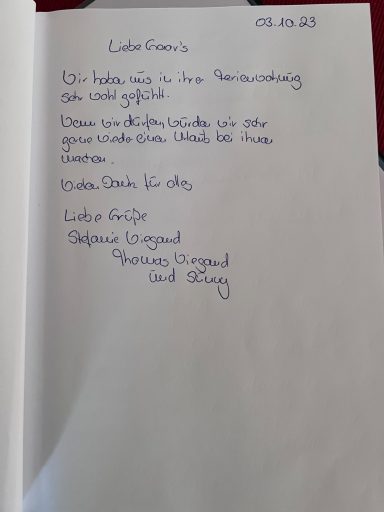 03.10.23
Liebe Graar's
Wir haben uns in ihrer Ferienwohnung
sehr wohl gefühlt.
Wenn wir dürfen, würden wir sehr
gerne wieder einen Urlaub bei ihnen
machen.
Vielen Dank für alles
Liebe Grüße
Stefanie Wiegand
Thomas Wiegand
und Sunny